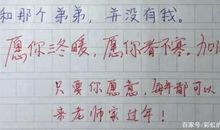 和那个弟弟，并没有我。
愿你三冬暖，愿你春不寒。加
只要你愿意，每年都可以
来老师家过年！
百家号/彩虹的